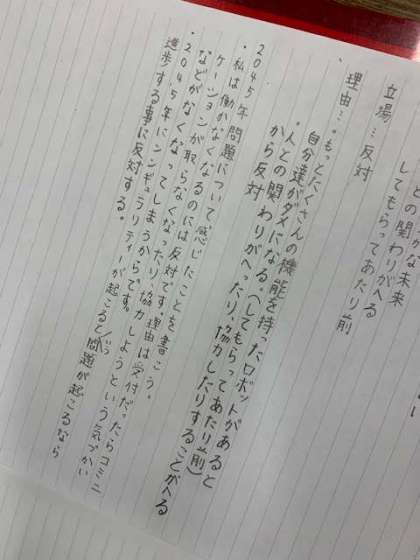 との関
な未来
してもらってあたり前
関わりがへる
立場…反対
理由…もっとたくさんの機能を持ったロボットがあると
自分達がダメになる。(してもらってあたり前)
・人との関わりがへったり、協力したりすることがへる
から反対
2045年問題について感じたことを書こう。
・私は働かなくなるのには反対です。理由は受付だったらコミニ
ケーションが取らなくなったり、協力しようという気づかい
などがなくなってしまうからです。
・2045年にシンギュラリティーが起こるという問題が起こるなら
進歩する事に反対する。